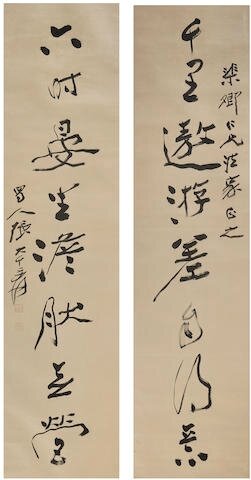 渠卿仁兄法家正之
千里遨游差自得
六时晏坐澹肰无營
蜀人張大千爰